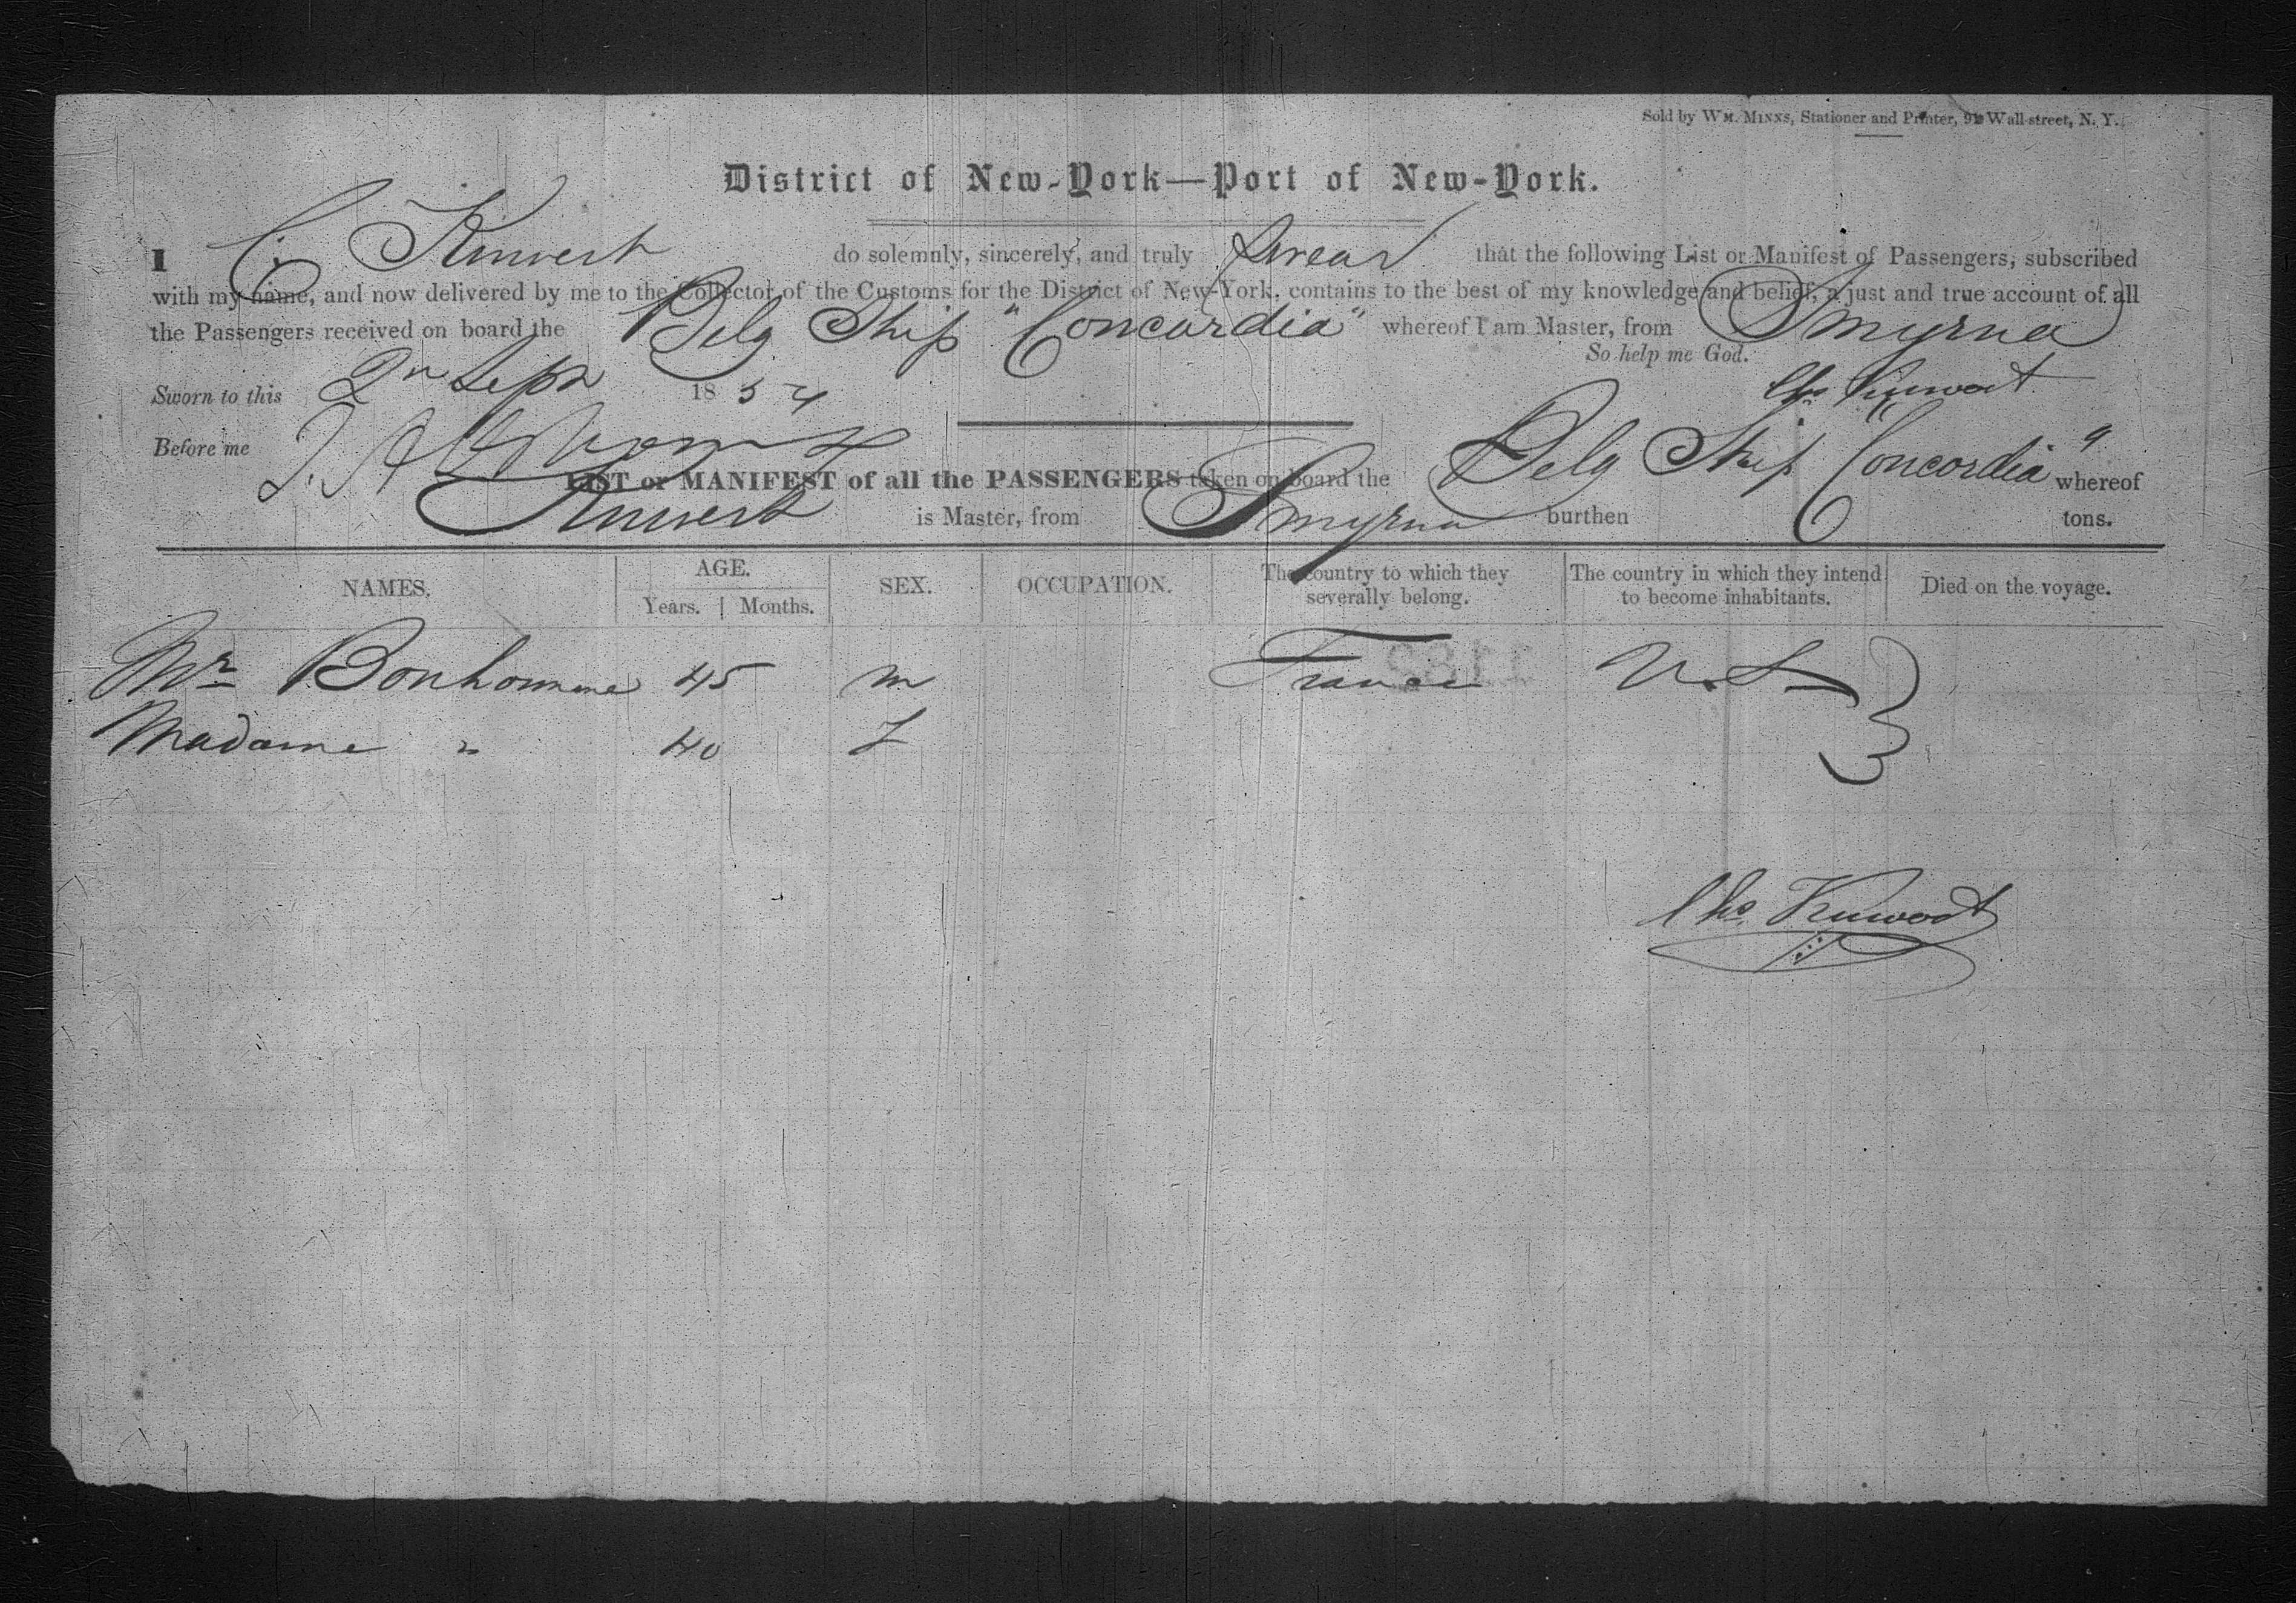 Sold by WM. MINNS, Stationer and Printer, 91 Wall-street, N. Y.
District of New-York—Port of New-York.
I C. do solemnly, sincerely, and truly Swear that the following List or Manifest of Passengers, subscribed
with my name, and now delivered by me to the Collector of the Customs for the District of New-York, contains to the best of my knowledge and belief, a just and true account of all
the Passengers received on board the Belg Ship "Concordia" whereof I am Master, from Smyrna
So help me God.
Sworn to this 2n Sept 1854 Chs
Before me
LIST or MANIFEST of all the PASSENGERS taken on board the Belg Ship "Concordia" whereof
is Master, from Smyrna burthen tons.
NAMES. AGE. Years. Months. SEX. OCCUPATION. The country to which they severally belong. The country in which they intend to become inhabitants. Died on the voyage.
Mr Bonhomme 45 m France U.S.
Madame " 40 f
Chs.